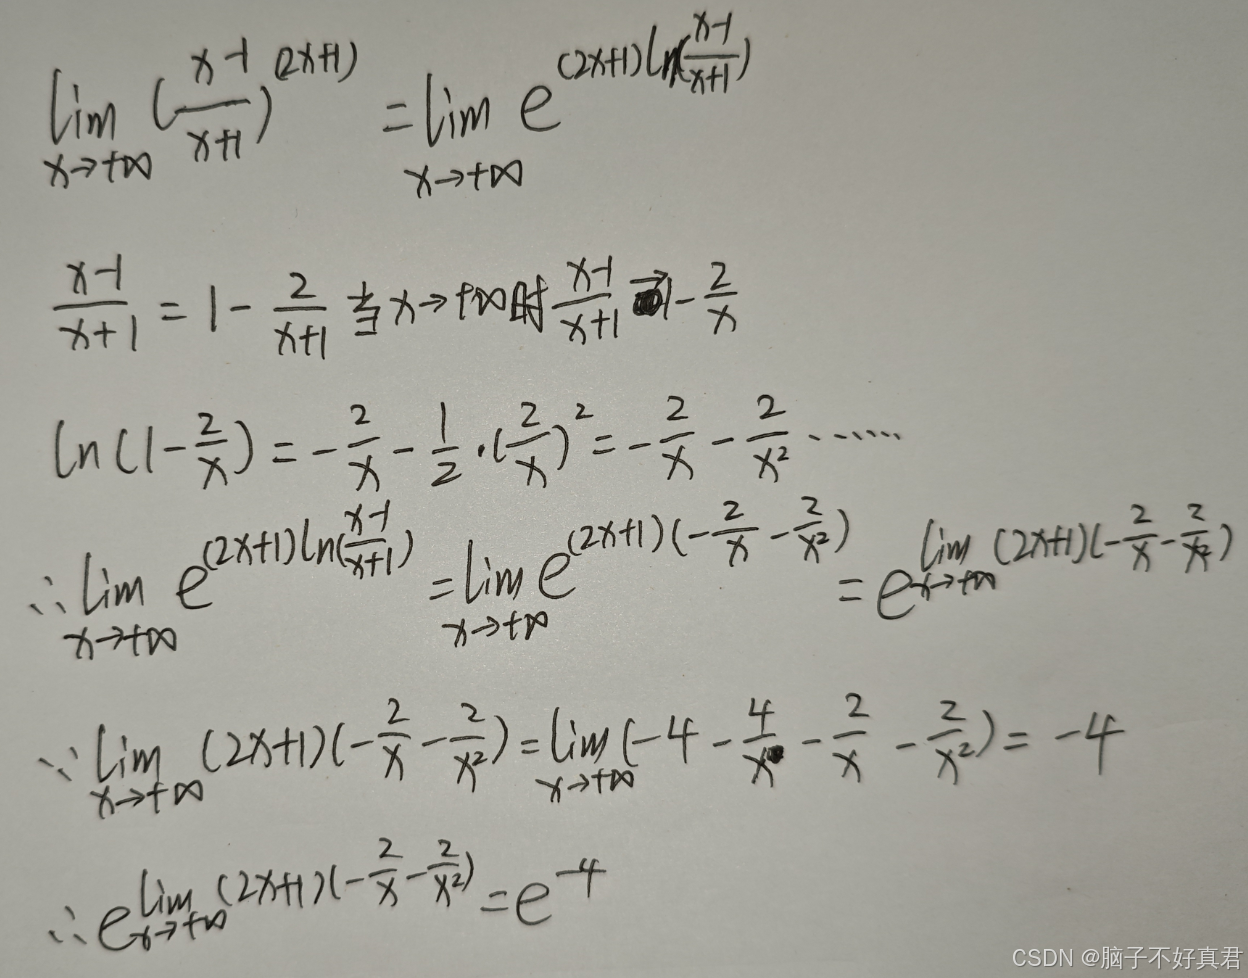 lim_{x→+∞} (\frac{x-1}{x+1})^{(2x+1)} = lim_{x→+∞} e^{(2x+1)ln(\frac{x-1}{x+1})}
\frac{x-1}{x+1} = 1 - \frac{2}{x+1} 当 x→+∞时 \frac{x-1}{x+1} → 1 - \frac{2}{x}
ln(1-\frac{2}{x}) = -\frac{2}{x} - \frac{1}{2}·(\frac{2}{x})^2 = -\frac{2}{x} - \frac{2}{x^2} ······
∴ lim_{x→+∞} e^{(2x+1)ln(\frac{x-1}{x+1})} = lim_{x→+∞} e^{(2x+1)(-\frac{2}{x}-\frac{2}{x^2})} = e^{lim_{x→+∞} (2x+1)(-\frac{2}{x}-\frac{2}{x^2})}
∵ lim_{x→+∞} (2x+1)(-\frac{2}{x}-\frac{2}{x^2}) = lim_{x→+∞} (-4-\frac{4}{x}-\frac{2}{x}-\frac{2}{x^2}) = -4
∴ e^{lim_{x→+∞} (2x+1)(-\frac{2}{x}-\frac{2}{x^2})} = e^{-4}
CSDN @脑子不好真君